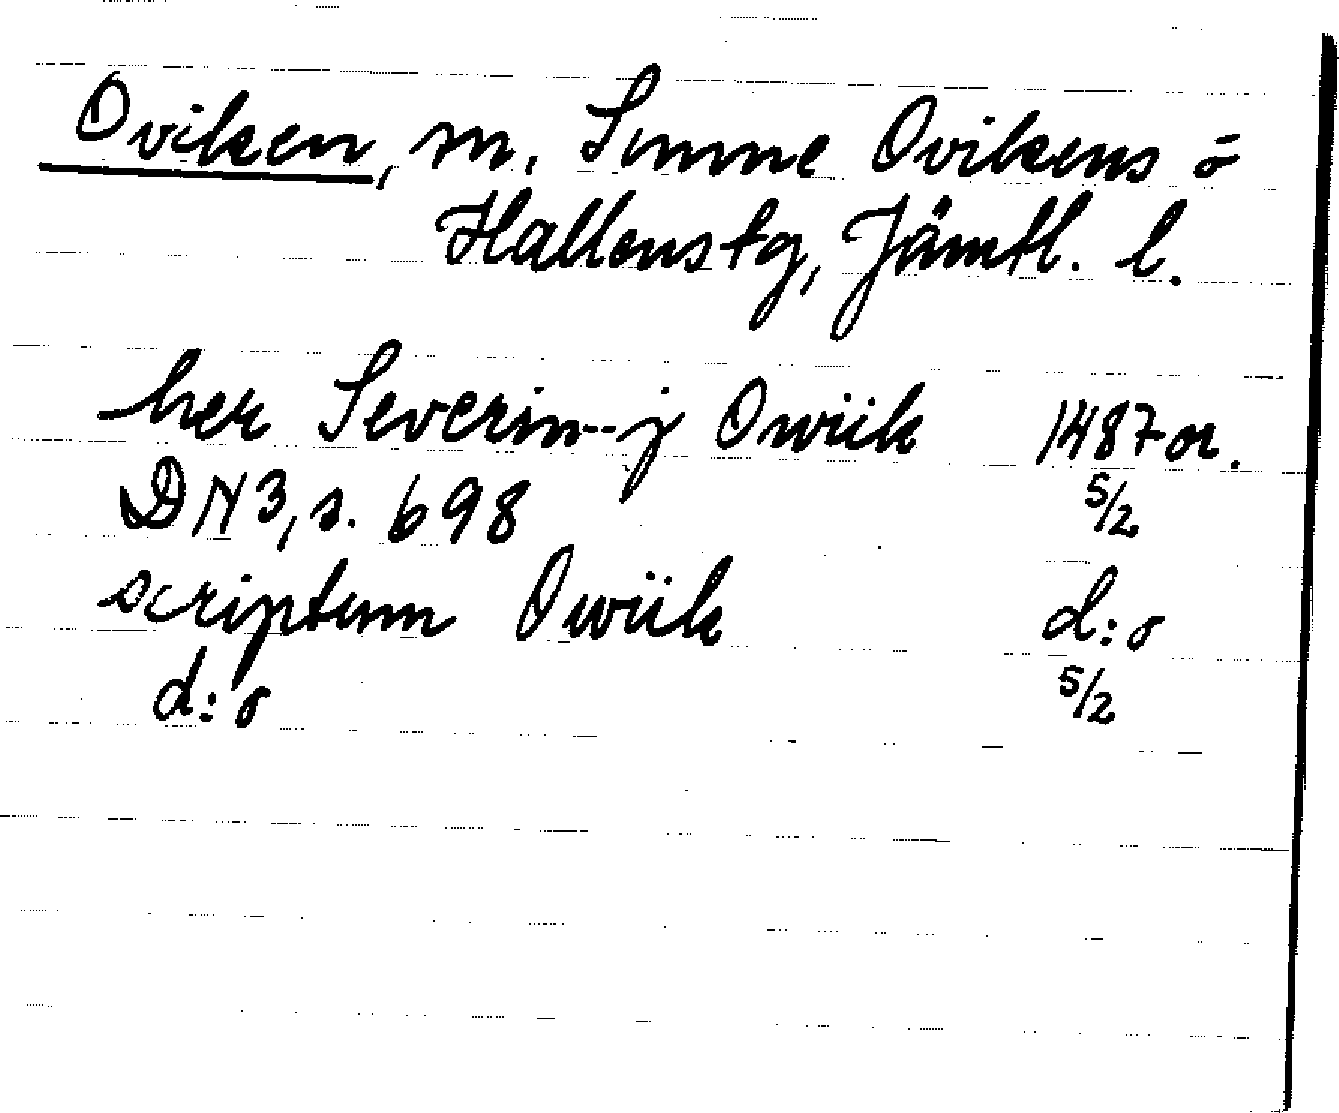 Oviken, sn, Sunne Ovikens o
Hallens tg, Jämtl. l.
her Severin-- j Owiik 1487 or.
DN 3, s. 698 5/2
scriptum Owiik d:o
d:o 5/2